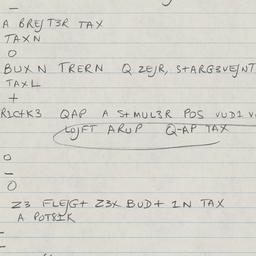 A BREJT3R TAX
TAXN
O
BUX N TRERN Q ZEJR, S+ARG3VEJNT
TAXL
+
R1C+K3 QAP A S+MUL3R POS VUD1 V
LOJFT ARUP Q-AP TAX
O
–
O
Z3 FLEJG+ Z3X BUD+ 1N TAX
A POT81K